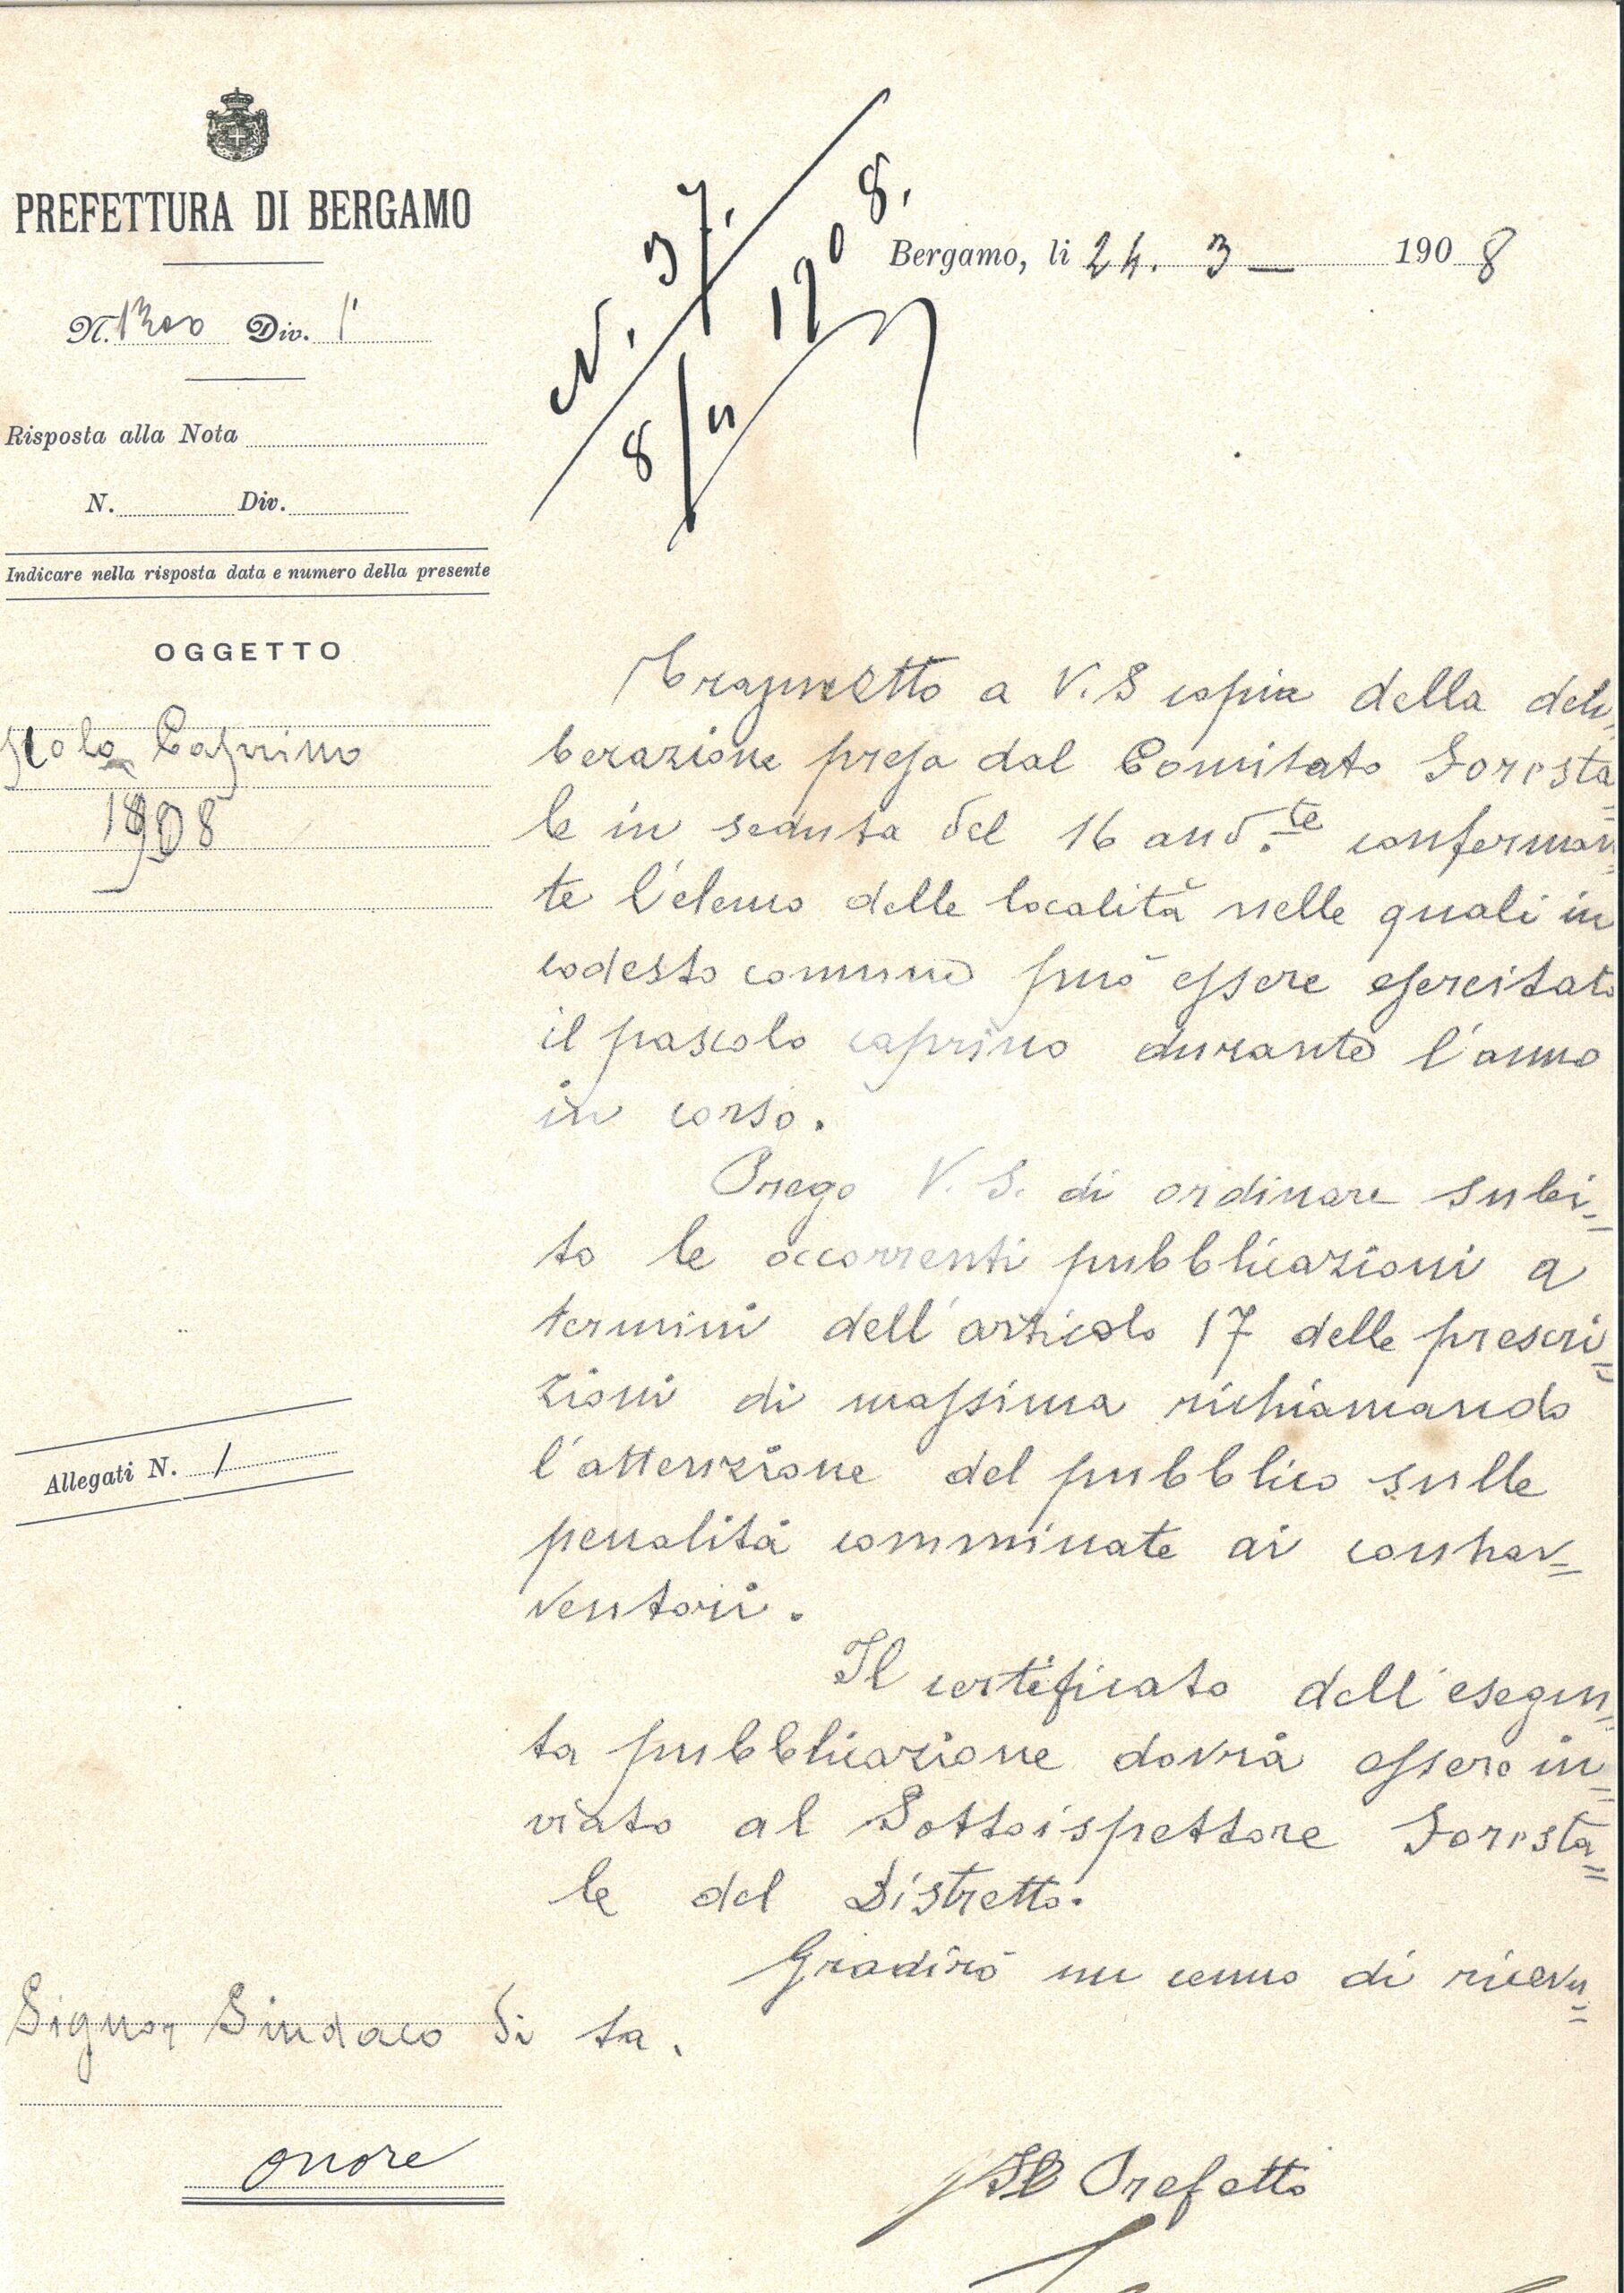 PREFETTURA DI BERGAMO
N. 1300 Div. 1ª
Risposta alla Nota
N. Div.
Indicare nella risposta data e numero della presente
OGGETTO
scolo Caprino
1908
Allegati N. 1
Signor Sindaco di
Onore
N. 37.
8/4 1908.
Bergamo, li 24. 3 1908
Trasmetto a V. S copia della deli-
berazione presa dal Comitato Foresta=
le in seduta del 16 and.te conferman
te l'elenco delle località nelle quali in
codesto comune può essere esercitato
il pascolo caprino durante l'anno
in corso.
Prego V. S. di ordinare subi=
to le occorrenti pubblicazioni a
termini dell'articolo 17 delle prescri=
zioni di massima richiamando
l'attenzione del pubblico sulle
penalità comminate ai contrav=
ventori.
Il certificato dell'esegui=
ta pubblicazione dovrà essere in=
viato al Sottoispettore Foresta=
le del Distretto.
Gradirò un cenno di ricevu=
ta.
Il Prefetto